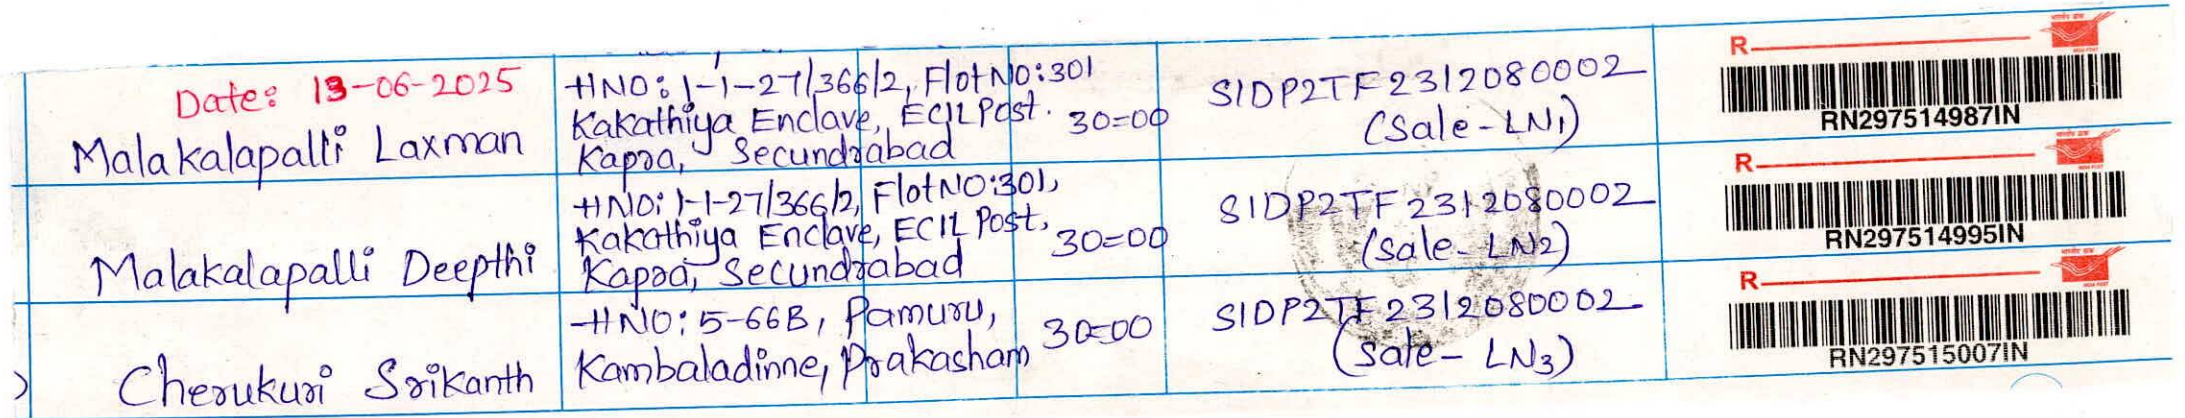 Date: 13-06-2025
Malakalapalli Laxman
HNO: 1-1-27/366/2, Flot NO:301
Kakathiya Enclave, ECIL Post.
Kapra, Secundrabad
30=00
SIDP2TF2312080002
(Sale-LN1)
R
RN297514987IN
Malakalapalli Deepthi
HNO: 1-1-27/366/2, Flot NO:301,
Kakathiya Enclave, ECIL Post,
Kapra, Secundrabad
30=00
SIDP2TF2312080002
(Sale-LN2)
R
RN297514995IN
Cherukuri Srikanth
HNO: 5-66B, Pamuru,
Kambaladinne, Prakasham
30=00
SIDP2TF2312080002
(Sale-LN3)
R
RN297515007IN